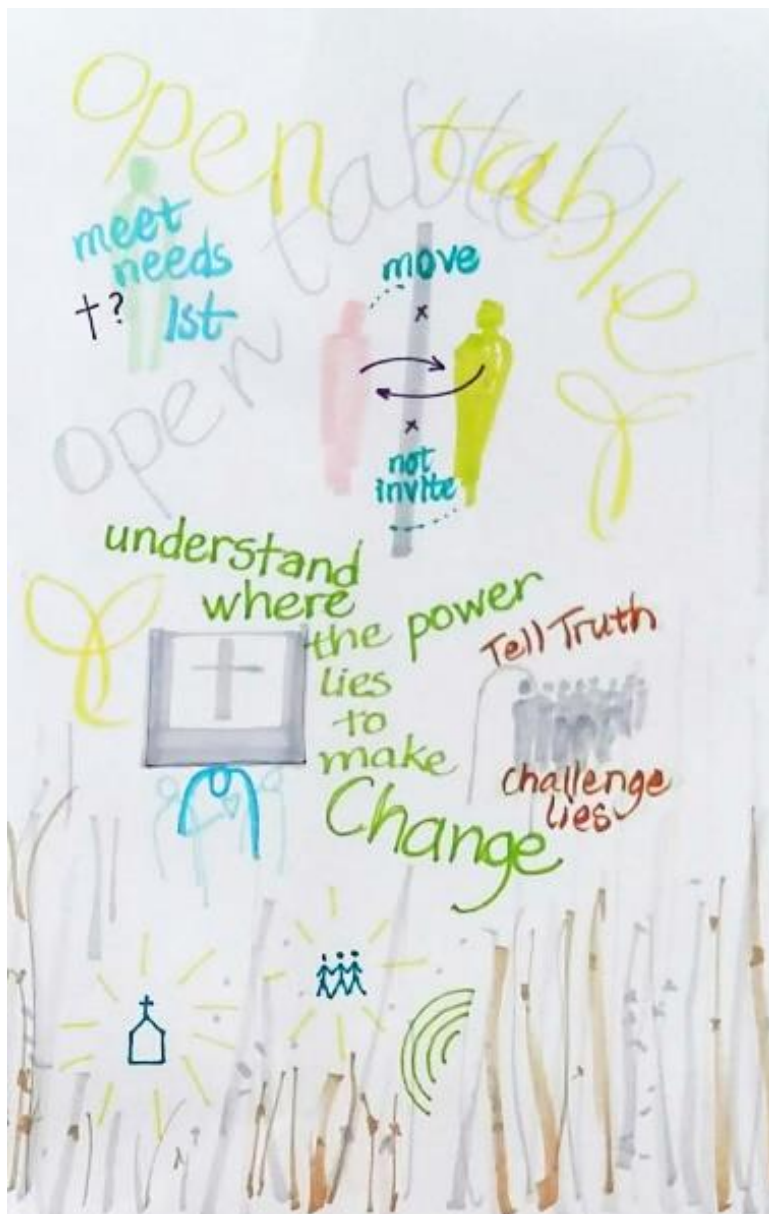 open table
open table
meet
needs
†? 1st
move
x
x
not
invite
understand
where
the power
lies
to
make
Change
Tell Truth
challenge
lies